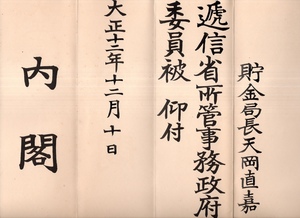 貯金局長天岡直嘉
遞信省所管事務政府
委員被 仰付
大正十二年十二月十日
內閣